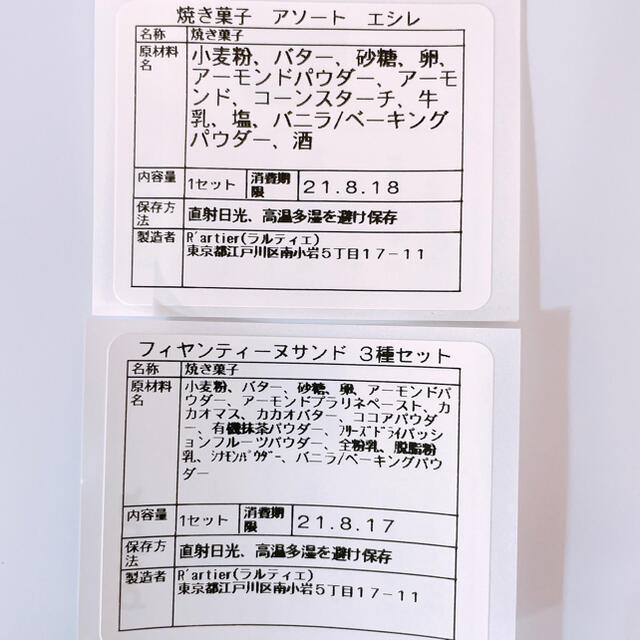 焼き菓子　アソート　エシレ
名称 焼き菓子
原材料名 小麦粉、バター、砂糖、卵、
アーモンドパウダー、アーモ
ンド、コーンスターチ、牛
乳、塩、バニラ/ベーキング
パウダー、酒
内容量 1セット 消費期限 21.8.18
保存方法 直射日光、高温多湿を避け保存
製造者 R'artier(ラルティエ)
東京都江戸川区南小岩5丁目17-11
フィヤンティーヌサンド 3種セット
名称 焼き菓子
原材料名 小麦粉、バター、砂糖、卵、アーモンドパ
ウダー、アーモンドプラリネペースト、カ
カオマス、カカオバター、ココアパウダ
ー、有機抹茶パウダー、ﾌﾘｰｽﾞﾄﾞﾗｲパッシ
ョンフルーツパウダー、全粉乳、脱脂粉
乳、ｼﾅﾓﾝﾊﾟｳﾀﾞｰ、バニラ/ベーキングパウ
ダー
内容量 1セット 消費期限 21.8.17
保存方法 直射日光、高温多湿を避け保存
製造者 R'artier(ラルティエ)
東京都江戸川区南小岩5丁目17-11